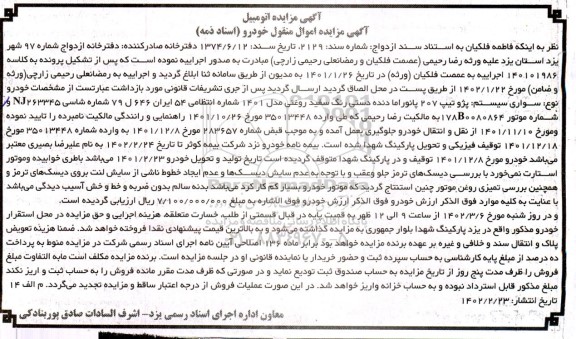 آگهی مزایده اتومبیل
آگهی مزایده اموال منقول خودرو (اسناد ذمه)
نظر به اینکه فاطمه فلکیان به استناد سند ازدواج: شماره سند: ۲۱۲۹، تاریخ سند: ۱۳۷۴/۶/۱۲ دفترخانه صادرکننده: دفترخانه ازدواج شماره ۹۷ شهر
یزد استان یزد علیه ورثه رضا رحیمی (عصمت فلکیان و رمضانعلی رحیمی زارچی) مبادرت به صدور اجراییه نموده است که پس از تشکیل پرونده به کلاسه
۱۴۰۱۰۱۹۸۶ اجراییه به عصمت فلکیان (ورثه) در تاریخ ۱۴۰۱/۱/۲۶ به مدیون از طریق سامانه ثنا ابلاغ گردید و اجراییه به رمضانعلی رحیمی زارچی (ورثه
و ضامن) مورخ ۱۴۰۲/۱/۲۲ از طریق پست در محل الصاق گردید ارسال گردید پس از جری تشریفات قانونی مورد بازداشت عبارتست از مشخصات خودرو
نوع: سواری سیستم: پژو تیپ ۲۰۷ پانوراما دنده رنگ سفید روغنی مدل ۱۴۰۱ شماره انتظامی ۵۴ ایران ۶۴۶ ل ۷۹ شماره شاسی NJ۲۶۳۳۴۵ و
شماره موتور ۱۷۸B۰۰۸۰۸۶۴ به مالکیت رضا رحیمی که طی وارده ۳۵۰۱۳۴۴۸ مورخ ۱۴۰۱/۱۰/۲۶ راهنمایی و رانندگی مالکیت نامبرده را تایید نموده
و مورخ ۱۴۰۱/۱۱/۱۰ از نقل و انتقال خودرو جلوگیری بعمل آمده و به موجب قبض شماره ۲۸۳۶۵۷ مورخ ۱۴۰۱/۱۲/۸ به وارده شماره ۳۵۰۱۳۴۴۸ مورخ
۱۴۰۱/۱۲/۱۸ توقیف فیزیکی و تحویل پارکینگ شهدا شده است. بیمه نامه خودرو نزد شرکت بیمه کوثر تا تاریخ ۱۴۰۲/۲/۲۴ به نام علیرضا بصیری معتبر
می‌باشد خودرو مورخ ۱۴۰۱/۱۲/۸ توقیف و در پارکینگ شهدا متوقف گردیده است تاریخ تولید و تحویل خودرو ۱۴۰۱/۲/۲۳ می‌باشد باطری خوابیده و موتور
استارت نمی‌خورد با بررسی دیسک‌های ترمز جلو وعقب و با توجه به عدم سایش دیسک‌ها و عدم ایجاد خطوط ناشی از سایش لنت بروی دیسک‌های ترمز و
همچنین بررسی تمیزی روغن موتور چنین استنتاج گردید که موتور خودرو بسیار کم کار کرد می‌باشد بدنه سالم بدون ضربه و خط و خش آسیب دیدگی می‌باشد
با عنایت به کلیه موارد فوق الذکر ارزش خودرو فوق الذکر ارزش خودرو فوق الاشاره به مبلغ ۷/۱۰۰/۰۰۰/۰۰۰ ریال ارزیابی گردیده است.
و در روز شنبه مورخ ۱۴۰۲/۳/۶ از ساعت ۹ الی ۱۲ ظهر به قیمت پایه در قبال قسمتی از طلب خسارت متعلقه هزینه اجرایی و حق مزایده در محل استقرار
خودرو مذکور واقع در یزد پارکینگ شهدا بلوار جمهوری به مزایده گذاشته می‌شود و به بالاترین قیمت پیشنهادی نقدا فروخته خواهد شد. ضمنا هزینه تعویض
پلاک و انتقال سند و خلافی و غیره بر عهده برنده مزایده خواهد بود برابر ماده ۱۳۶ اصلاحی آیین نامه اجرای اسناد رسمی شرکت در مزایده منوط به پرداخت
ده درصد از مبلغ پایه کارشناسی به حساب سپرده ثبت و حضور خریدار یا نماینده قانونی او در جلسه مزایده است. برنده مزایده مکلف است مابه التفاوت مبلغ
فروش را ظرف مدت پنج روز از تاریخ مزایده به حساب صندوق ثبت تودیع نماید و در صورتی که ظرف مدت مقرر مانده فروش را به حساب ثبت و اریز نکند
مبلغ مذکور قابل استرداد نبوده و به حساب خزانه واریز خواهد شد. در این صورت عملیات فروش از درجه اعتبار ساقط و مزایده تجدید می‌گردد. م الف ۱۴
تاریخ انتشار: ۱۴۰۲/۲/۲۳
معاون اداره اجرای اسناد رسمی یزد- اشرف السادات صادق پوربنادکی